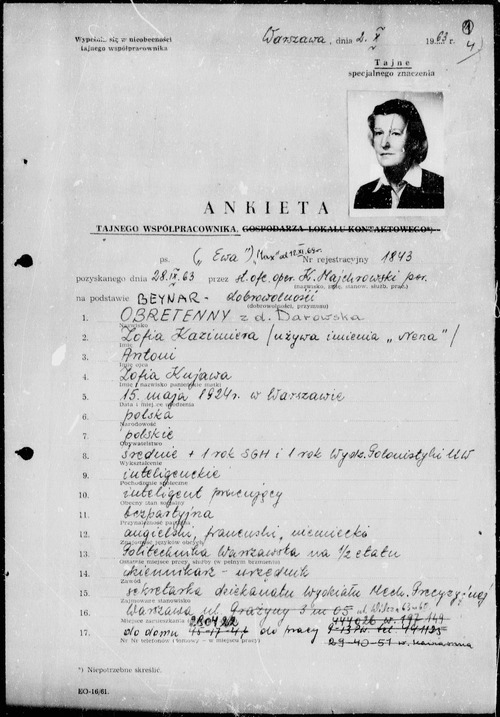 Wypełnia się w nieobecności
tajnego współpracownika
Warszawa, dnia 2. X 1963 r.
Tajne
specjalnego znaczenia
ANKIETA
TAJNEGO WSPÓŁPRACOWNIKA, GOSPODARZA LOKALU KONTAKTOWEGO*)
ps. („Ewa”), Nr rejestracyjny 1843
pozyskanego dnia 28.IX.63 przez st. ofc. oper. K. Majchrowski por.
(nazwisko, imię, stanow. służb., prac.)
na podstawie BEYNAR - dobrowolności
(dobrowolności, przymusu)
1. OBRETENNY z d. Darowska
Nazwisko
2. Zofia Kazimiera /używa imienia „Nena”/
Imię
3. Antoni
Imię ojca
4. Zofia Kujawa
Imię i nazwisko panieńskie matki
5. 15. maja 1924r. w Warszawie
Data i miejsce urodzenia
6. polska
Narodowość
7. polskie
Obywatelstwo
8. średnie + 1 rok SGH i 1 rok Wydz. Polonistyki UW
Wykształcenie
9. inteligenckie
Pochodzenie społeczne
10. inteligent pracujący
Obecny stan socjalny
11. bezpartyjna
Przynależność partyjna
12. angielski, francuski, niemiecki
Znajomość języków obcych
13. Politechnika Warszawska na 1/2 etatu
Ostatnie miejsce pracy, służby (w pełnym brzmieniu)
14. dziennikarz - urzędnik
Zawód
15. sekretarka dziekanatu wydziału Mech. Precyzyjnej
Zajmowane stanowisko
16. Warszawa ul. Grażyny
Miejsce zamieszkania
17. do domu do pracy
Nr Nr telefonów (domowy — w miejscu pracy)
*) Niepotrzebne skreślić.
EO-16/61.